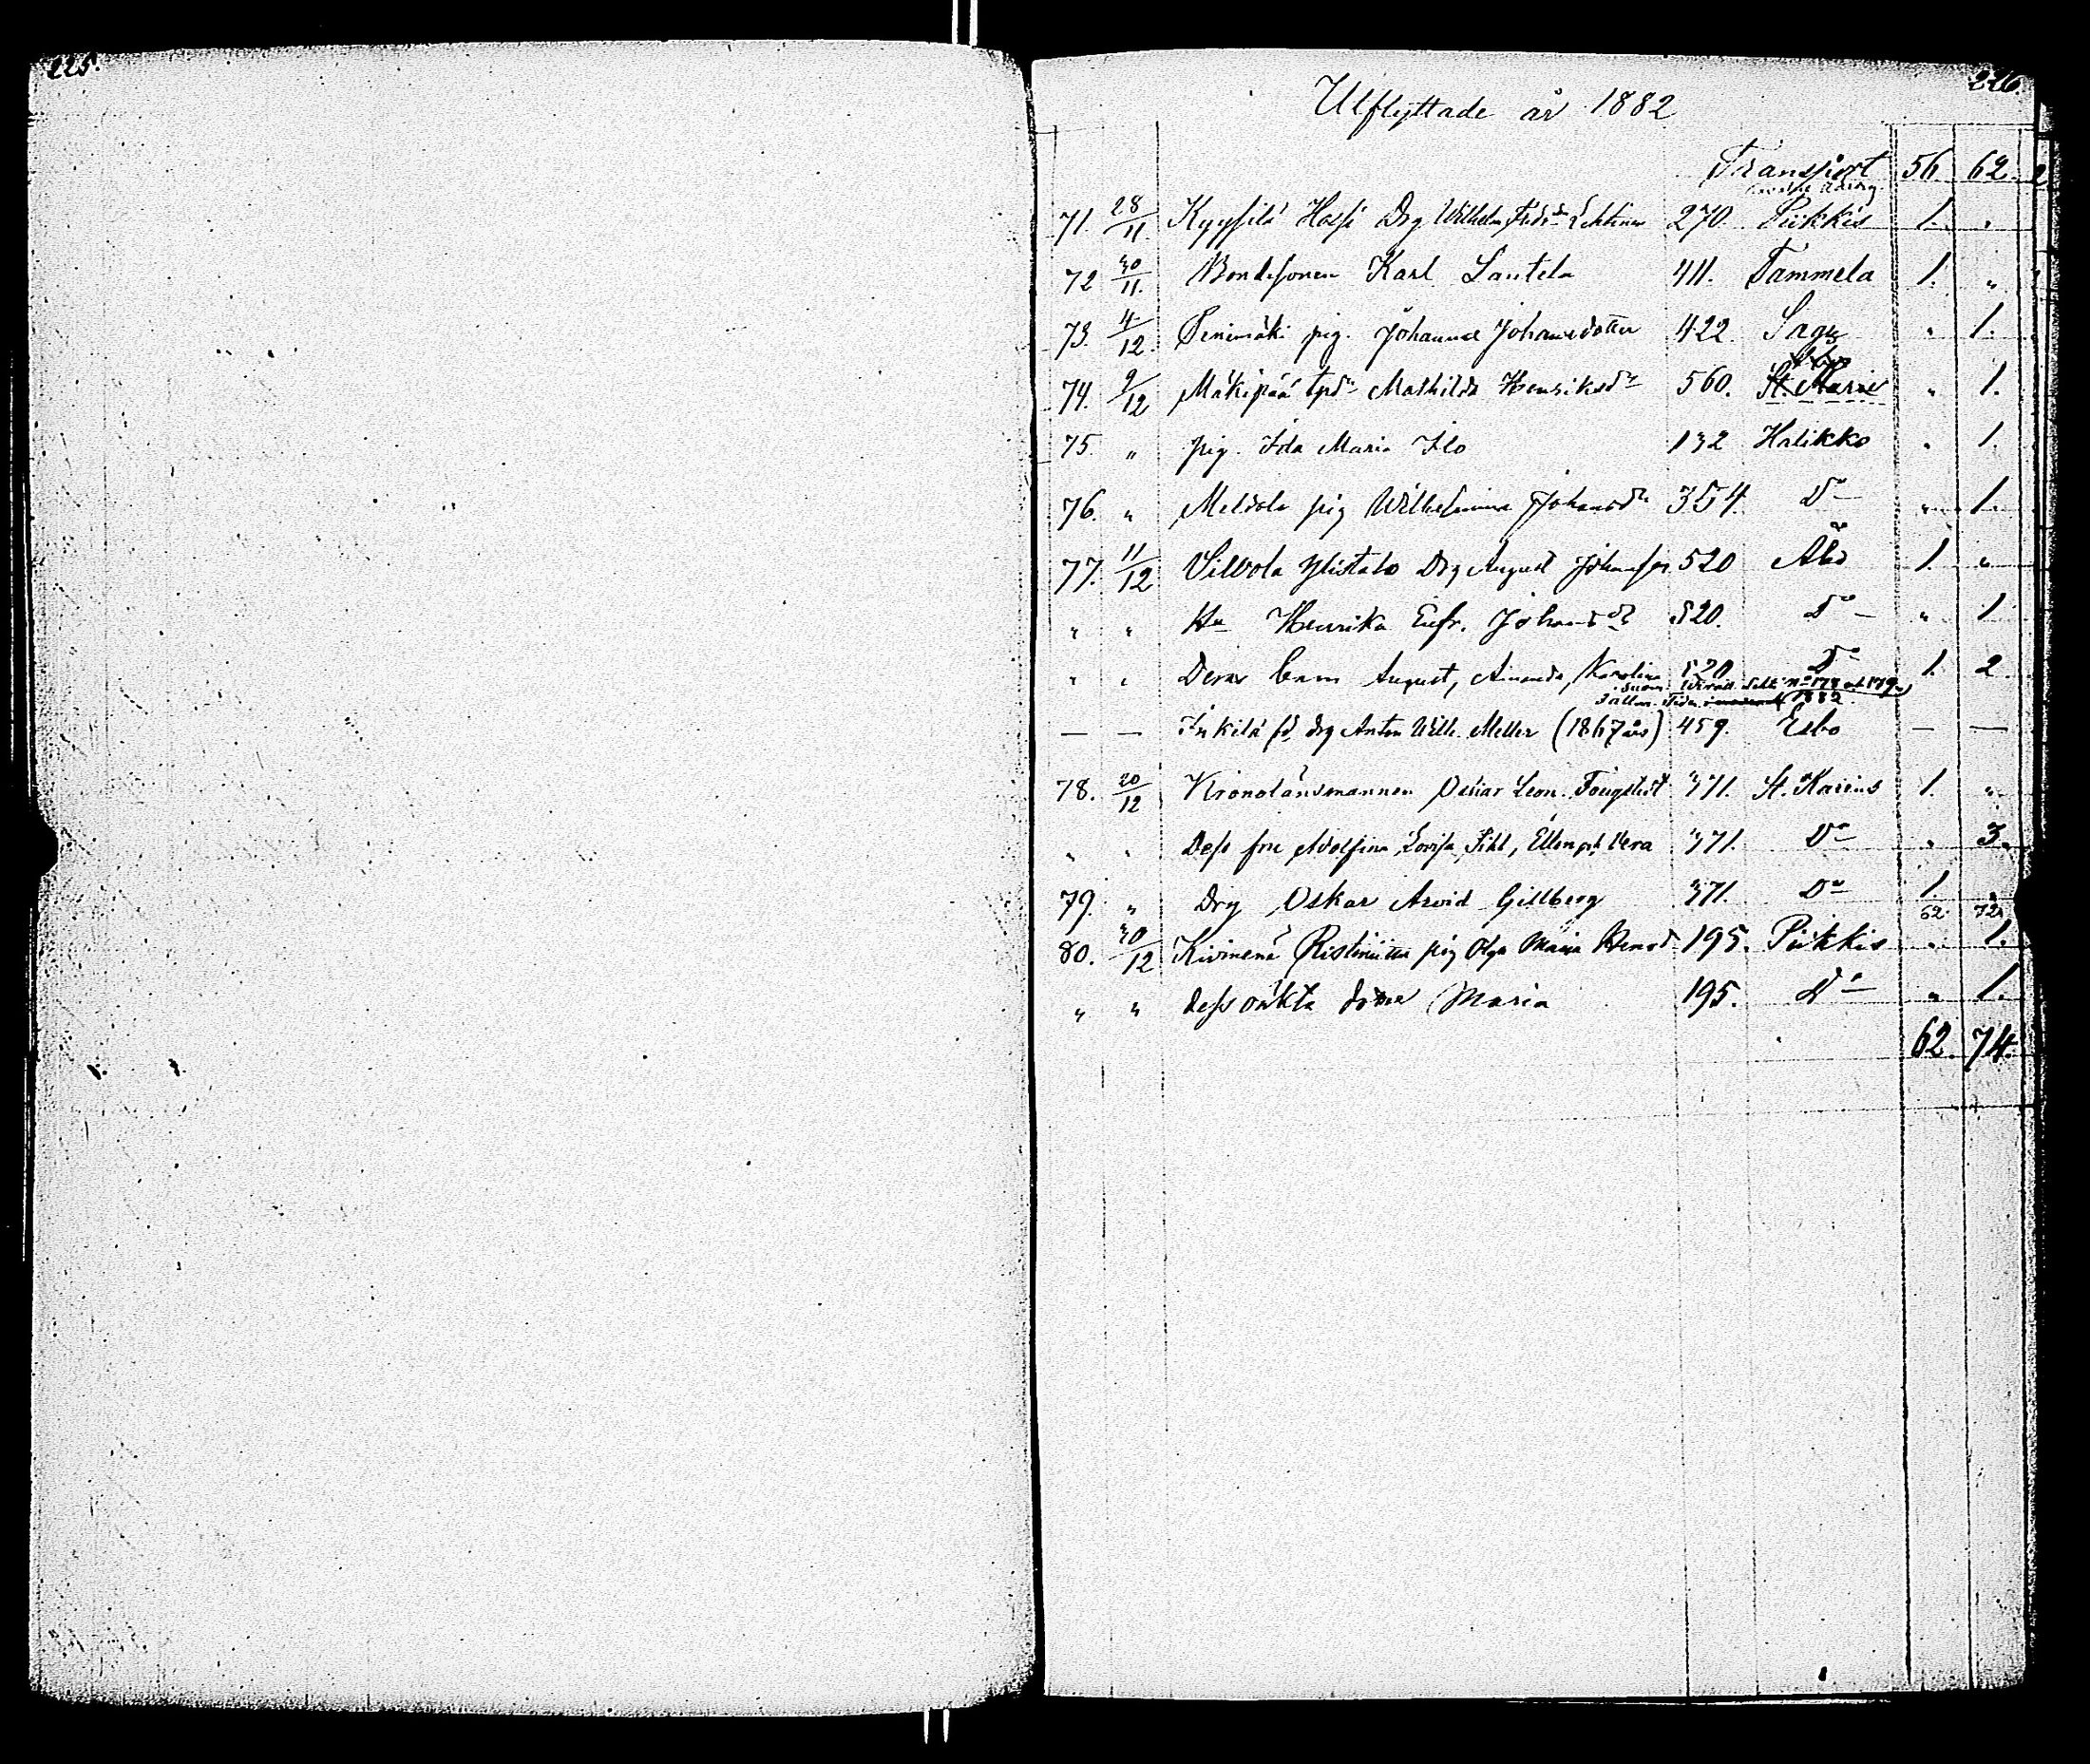 225.
226.
Utflyttade år 1882
Transport 56. 62. 2
71. 28/11. Kyysilä Hossi Drg Wilhelm Lehtinen 270. Piikkis 1. "
72 30/11. Bondesonen Karl Lautela 411. Tammela 1. "
73. 4/12. pig. Johanna Johansdotter 422. Sagu " 1.
74. 9/12 Mäkipää Mathilda Henriksdr 560. St. Marie " 1.
75. " pig. Ida Maria Ilo 132 Halikko " 1.
76. " Meldola pig Wilhelmina Johansdr 354. Do " 1.
77. 11/12 Silvola Ylistalo Drg August Johansson 520 Åbo 1. "
" " Hu Henrika Eufr. Johansdr 520. Do " 1
" " Deras barn August, Amanda, Karolina 520. Do 1. 2.
No 178 och 179
1882.
— — Inkilä fd. drg Anton Wilh. Meller (1867 års) 459. Esbo — —
78. 20/12 Kronolänsmannen Oskar Leon. 371. St. Karins 1. "
" " Dess fru Adolfina Lovisa, Ellen och Vera 371. Do " 3.
79. " Drg Oskar Arvid Gillberg 371. Do 1. "
62. 72.
80. 30/12 pig Olga Maria 195. Piikkis " 1.
" " dess oäkta dotter Maria 195. Do " 1.
62. 74.